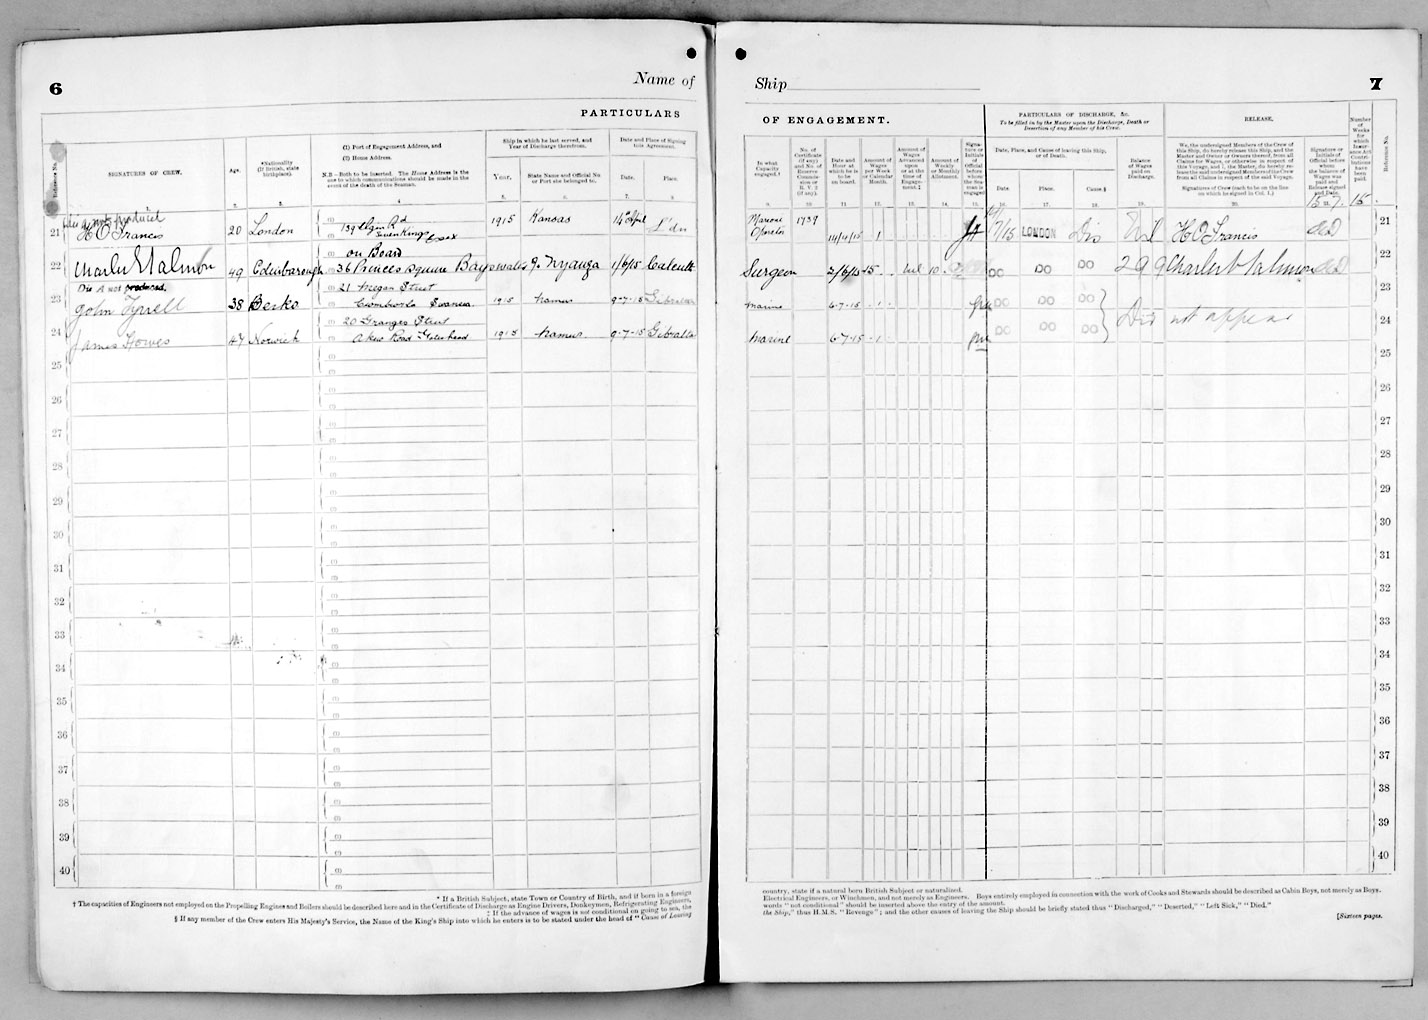 6
Name of
PARTICULARS
Reference No.
SIGNATURES OF CREW.
Age.
*Nationality
(If British, state
birthplace).
(1) Port of Engagement Address, and
(2) Home Address.
N.B – Both to be inserted. The Home Address is the
one to which communications should be made in the
event of the death of the Seaman.
Ship in which he last served, and
Year of Discharge therefrom.
Year.
State Name and Official No.
or Port she belonged to.
Date and Place of Signing
this Agreement.
Date.
Place.
1. 2. 3. 4 5. 6. 7. 8.
not produced
21 H O Francis 20 London 139 Elgin Rd Seven Kings Essex 1915 Kansas 14th April L'dn
on Board
22 Charles Salmon 49 Edinborough 36 Princes Square Bayswater Nyanza 1/6/15 Calcutta
Dis A not produced.
21 Megan Street
23 John Tyrell 38 Berks Swansea 1915 9-7-15 Gibraltar
20 Granger Street
24 James Howes 47 Norwich Road 1915 9-7-15 Gibraltar
25
26
27
28
29
30
31
32
33
34
35
36
37
38
39
40
* If a British Subject, state Town or Country of Birth, and if born in a foreign
† The capacities of Engineers not employed on the Propelling Engines and Boilers should be described here and in the Certificate of Discharge as Engine Drivers, Donkeymen, Refrigerating Engineers,
‡ If the advance of wages is not conditional on going to sea, the
§ If any member of the Crew enters His Majesty's Service, the Name of the King's Ship into which he enters is to be stated under the head of "Cause of Leaving
Ship
7
OF ENGAGEMENT.
In what
Capacity
engaged.†
No. of
Certificate
(if any)
and No. of
Reserve
Commis-
sion or
R. V. 2
(if any).
Date and
Hour at
which he is
to be
on board.
Amount of
Wages
per Week
or Calendar
Month.
Amount of
Wages
Advanced
upon
or at the
time of
Engage-
ment.‡
Amount of
Weekly
or Monthly
Allotment.
Signa-
ture or
Initials
of
Official
before
whom
the Sea-
man is
engaged
PARTICULARS OF DISCHARGE, &c.
To be filled in by the Master upon the Discharge, Death or
Desertion of any Member of his Crew.
Date, Place, and Cause of leaving this Ship,
or of Death.
Date.
Place.
Cause.§
Balance
of Wages
paid on
Discharge.
RELEASE.
We, the undersigned Members of the Crew of
this Ship, do hereby release this Ship, and the
Master and Owner or Owners thereof, from all
Claims for Wages, or otherwise in respect of
this Voyage, and I, the Master, do hereby re-
lease the said undersigned Members of the Crew
from all Claims in respect of the said Voyage.
Signatures of Crew (each to be on the line
on which he signed in Col. 1.)
Signature or
Initials of
Official before
whom
the balance of
Wages was
paid and
Release signed
and Date.
Number
of
Weeks
for
which
Insur-
ance Act
Contri-
butions
have
been
paid.
Reference No.
9. 10 11 12. 13. 14. 15. 16. 17. 18. 19. 20. 21.
15 7 15
Marconi Operator 1739 14/4/15 1 7/15 LONDON Dis Nil H O Francis 21
Surgeon 2/6/15 Nil 10 DO DO DO 2 9 9 Charles Salmon 22
Marine 6-7-15 1 DO DO DO 23
Did not appear
Marine 6-7-15 1 DO DO DO 24
25
26
27
28
29
30
31
32
33
34
35
36
37
38
39
40
country, state if a natural born British Subject or naturalized.
Electrical Engineers, or Winchmen, and not merely as Engineers. Boys entirely employed in connection with the work of Cooks and Stewards should be described as Cabin Boys, not merely as Boys.
words "not conditional" should be inserted above the entry of the amount.
the Ship," thus H.M.S. "Revenge"; and the other causes of leaving the Ship should be briefly stated thus "Discharged," "Deserted," "Left Sick," "Died."
[Sixteen pages.